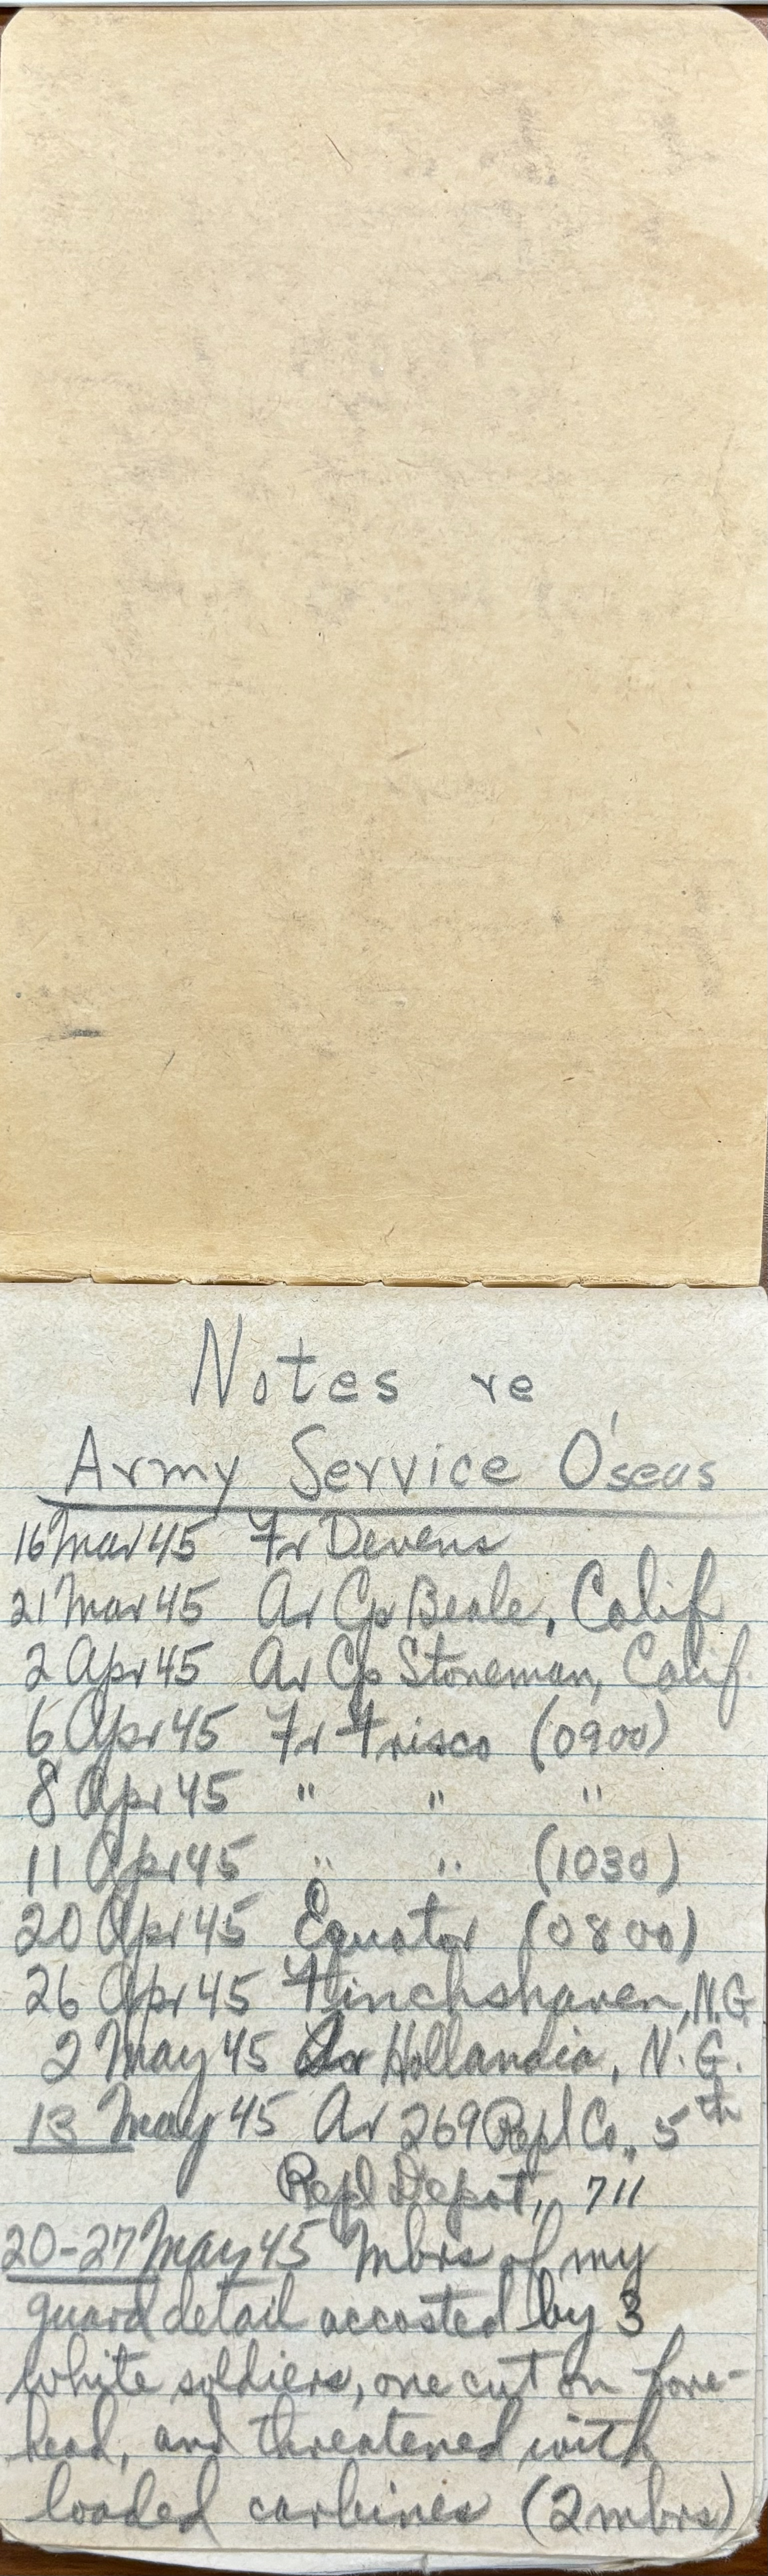 Notes re
Army Service O'seas
16 Mar 45 Fr Devens
21 Mar 45 Ar Cp Beale, Calif
2 Apr 45 Ar Cp Stoneman, Calif
6 Apr 45 Fr Frisco (0900)
8 Apr 45 " " "
11 Apr 45 " " (1030)
20 Apr 45 Equator (0800)
26 Apr 45 Finchshaven, N.G.
2 May 45 Ar Hollandia, N.G.
13 May 45 Ar 269 Repl Co., 5th
Repl Depot, 711
20-27 May 45 Mbrs of my
guard detail accosted by 3
white soldiers, one cut on fore-
head, and threatened with
loaded carbines (2 mbrs)